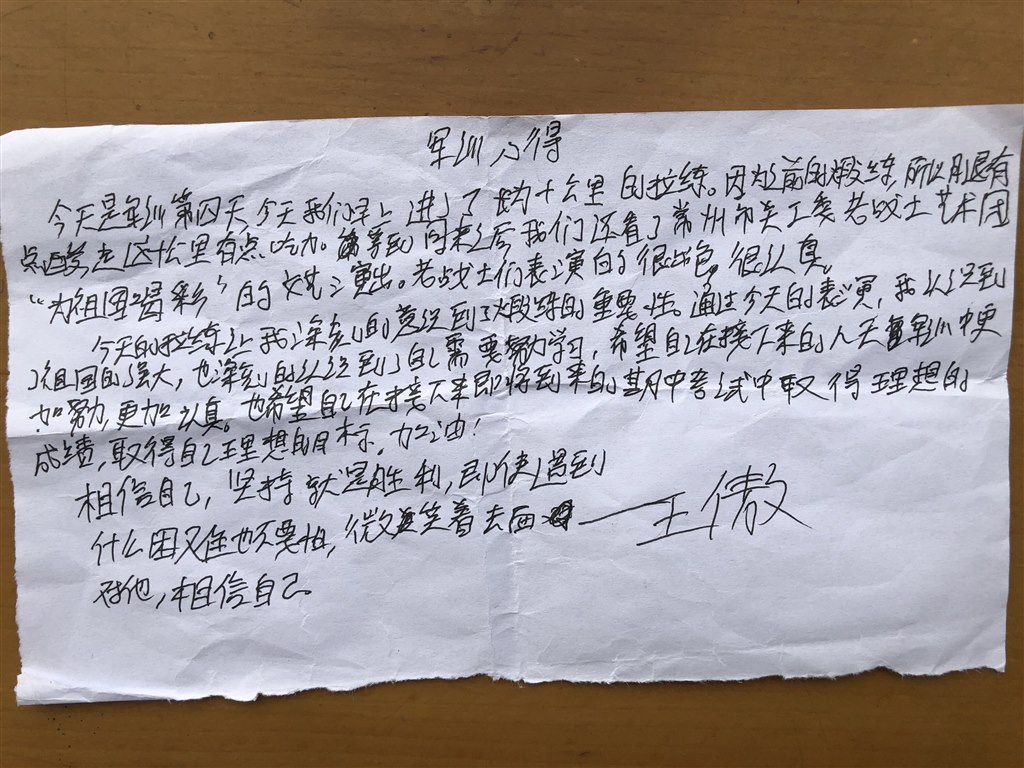 军训心得
今天是军训第四天,今天我们早上进行了长为十公里的拉练。因为之前的煅练,所以腿有
点酸,走这十公里有点吃力。等到回来之后我们还看了常州市关工委老战士艺术团
“为祖国喝彩”的文艺演出。老战士们表演的很出色,很认真。
今天的拉练让我深刻的意识到了煅练的重要性。通过今天的表演,我认识到
了祖国的强大,也深刻的认识到了自己需要努力学习,希望自己在接下来的八天军训中更
加努力,更加认真。也希望自己在接下来即将到来的期中考试中取得理想的
成绩,取得自己理想的目标,加油!
相信自己,坚持就是胜利,即使遇到
什么困难也不要怕,微笑着去面
对他,相信自己
——王傲